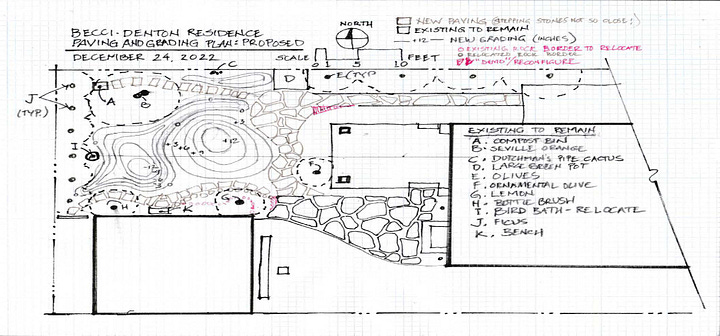 BECCI-DENTON RESIDENCE
PAVING AND GRADING PLAN: PROPOSED
DECEMBER 24, 2022
NORTH
SCALE 0 1 5 10 FEET
NEW PAVING (STEPPING STONES NOT SO CLOSE!)
EXISTING TO REMAIN
+12 — NEW GRADING (INCHES)
EXISTING ROCK BORDER TO RELOCATE
RELOCATED ROCK BORDER
"DEMO"/RECONFIGURE
C
D
E (TYP
J
(TYP.)
A
B
I
+12
-12
F
G
H
K
EXISTING TO REMAIN
A. COMPOST BIN
B. SEVILLE ORANGE
C. DUTCHMAN'S PIPE CACTUS
D. LARGE GREEN POT
E. OLIVES
F. ORNAMENTAL OLIVE
G. LEMON
H. BOTTLE BRUSH
I. BIRD BATH - RELOCATE
J. FICUS
K. BENCH